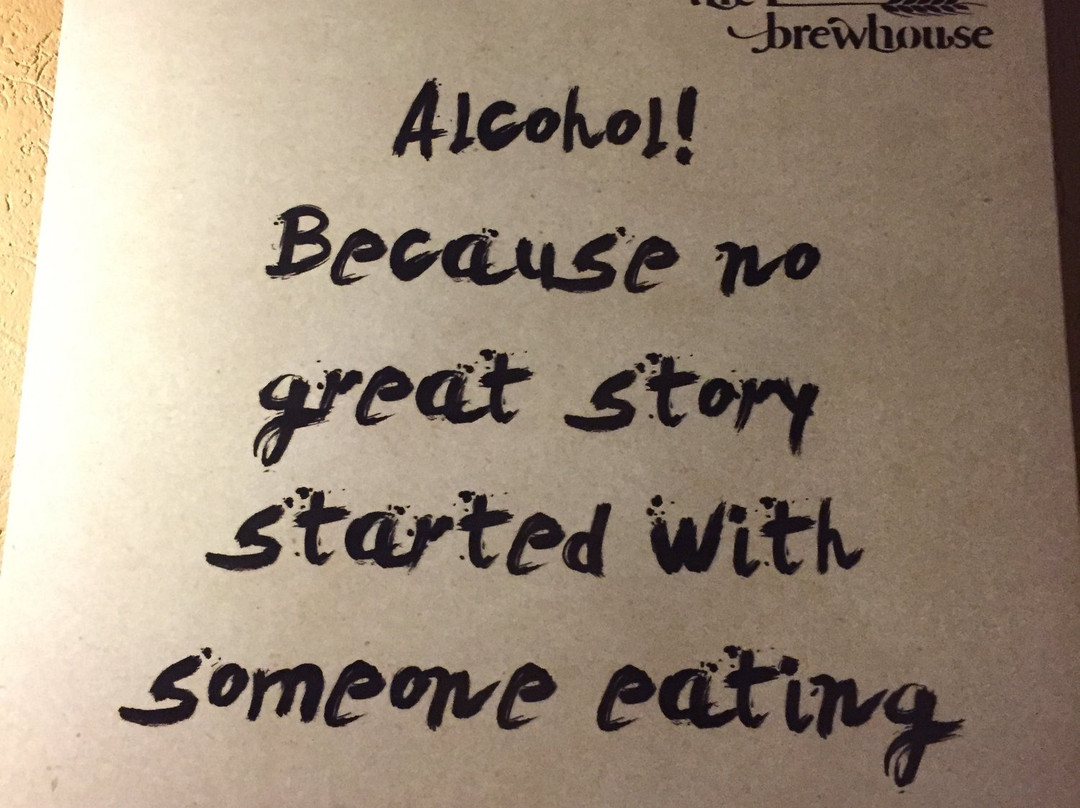 brewhouse
Alcohol!
Because no
great story
started with
someone eating